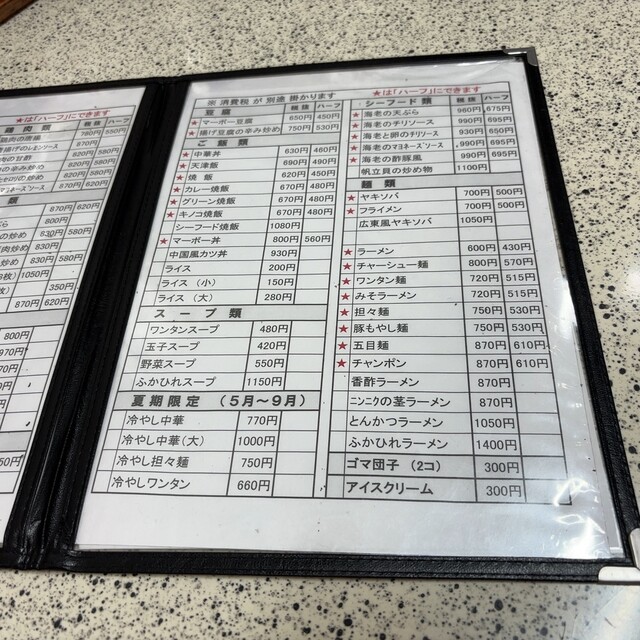 ★は「ハーフ」にできます
鶏肉類
780円 550円
揚げのレモンソース 870円
820円 580円
870円 620円
マヨネーズソース 820円 620円
類
870円 620円
800円
の炒め 830円 580円
炒め 820円 580円
炒め 830円 580円
1050円
350円
870円 620円
800円
970円
870円
※ 消費税 が 別途 掛かります
豆腐 税抜 ハーフ
★マーボー豆腐 650円 450円
★揚げ豆腐の辛み炒め 750円 530円
ご飯類
★中華丼 630円 460円
★天津飯 690円 490円
★焼飯 620円 450円
★カレー焼飯 670円 480円
★グリーン焼飯 670円 480円
★キノコ焼飯 670円 480円
シーフード焼飯 1080円
★マーボー丼 800円 560円
中国風カツ丼 930円
ライス 200円
ライス (小) 150円
ライス (大) 280円
スープ類
ワンタンスープ 480円
玉子スープ 420円
野菜スープ 550円
ふかひれスープ 1150円
夏期限定 (5月〜9月)
冷やし中華 770円
冷やし中華(大) 1000円
冷やし担々麺 750円
冷やしワンタン 660円
★は「ハーフ」にできます
シーフード類 税抜 ハーフ
★海老の天ぷら 960円 675円
★海老のチリソース 990円 695円
★海老と卵のチリソース 930円 650円
★海老のマヨネーズソース 990円 695円
★海老の酢豚風 990円 695円
帆立貝の炒め物 1100円
麺類
★ヤキソバ 700円 500円
★フライメン 700円 500円
広東風ヤキソバ 1050円
★ラーメン 600円 430円
★チャーシュー麺 800円 570円
★ワンタン麺 720円 515円
★みそラーメン 720円 515円
★担々麺 750円 530円
★豚もやし麺 750円 530円
★五目麺 870円 610円
★チャンポン 870円 610円
香酢ラーメン 870円
ニンニクの茎ラーメン 870円
とんかつラーメン 1050円
ふかひれラーメン 1400円
ゴマ団子 (2コ) 300円
アイスクリーム 300円